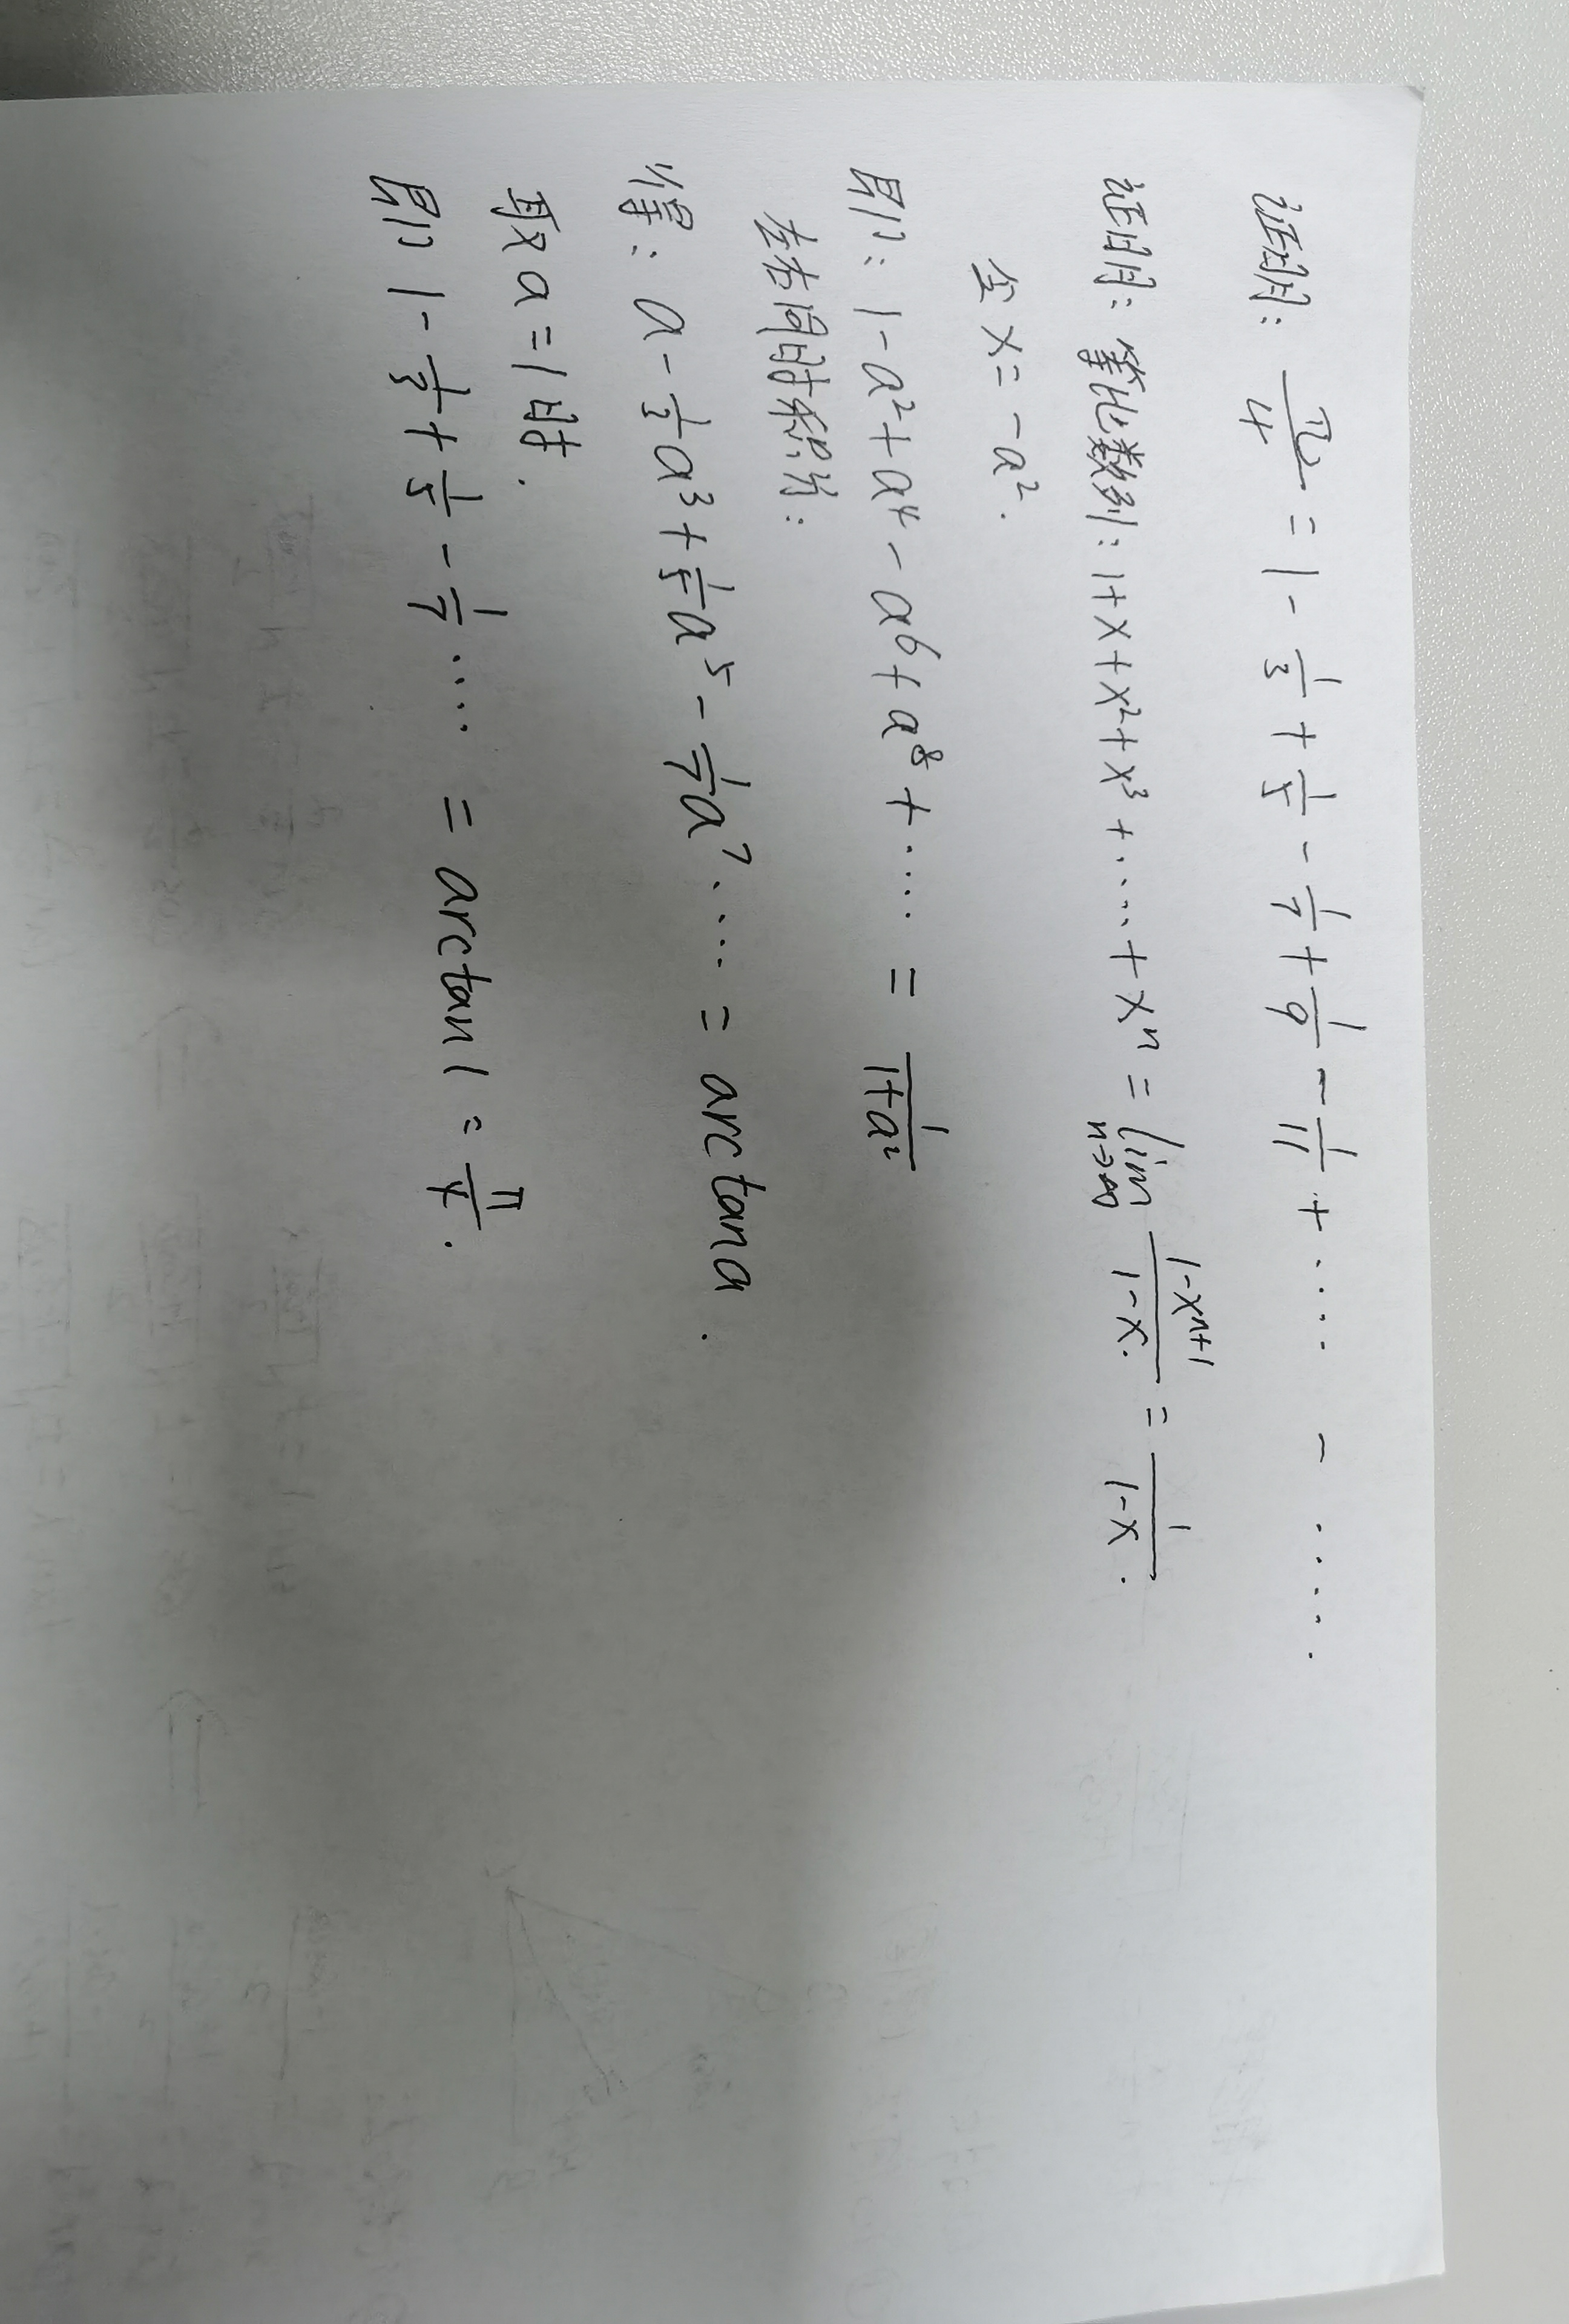 证明: π/4 = 1 - 1/3 + 1/5 - 1/7 + 1/9 - 1/11 + ····· - ·····.
证明: 等比数列: 1+x+x²+x³+·····+xⁿ = lim n→∞ (1-xⁿ⁺¹)/(1-x) = 1/(1-x).
令 x = -a².
即: 1-a²+a⁴-a⁶+a⁸+···· = 1/(1+a²)
左右同时积分:
得: a - 1/3 a³ + 1/5 a⁵ - 1/7 a⁷ ····· = arctan a.
取 a=1 时.
即 1 - 1/3 + 1/5 - 1/7 ····· = arctan 1 = π/4.